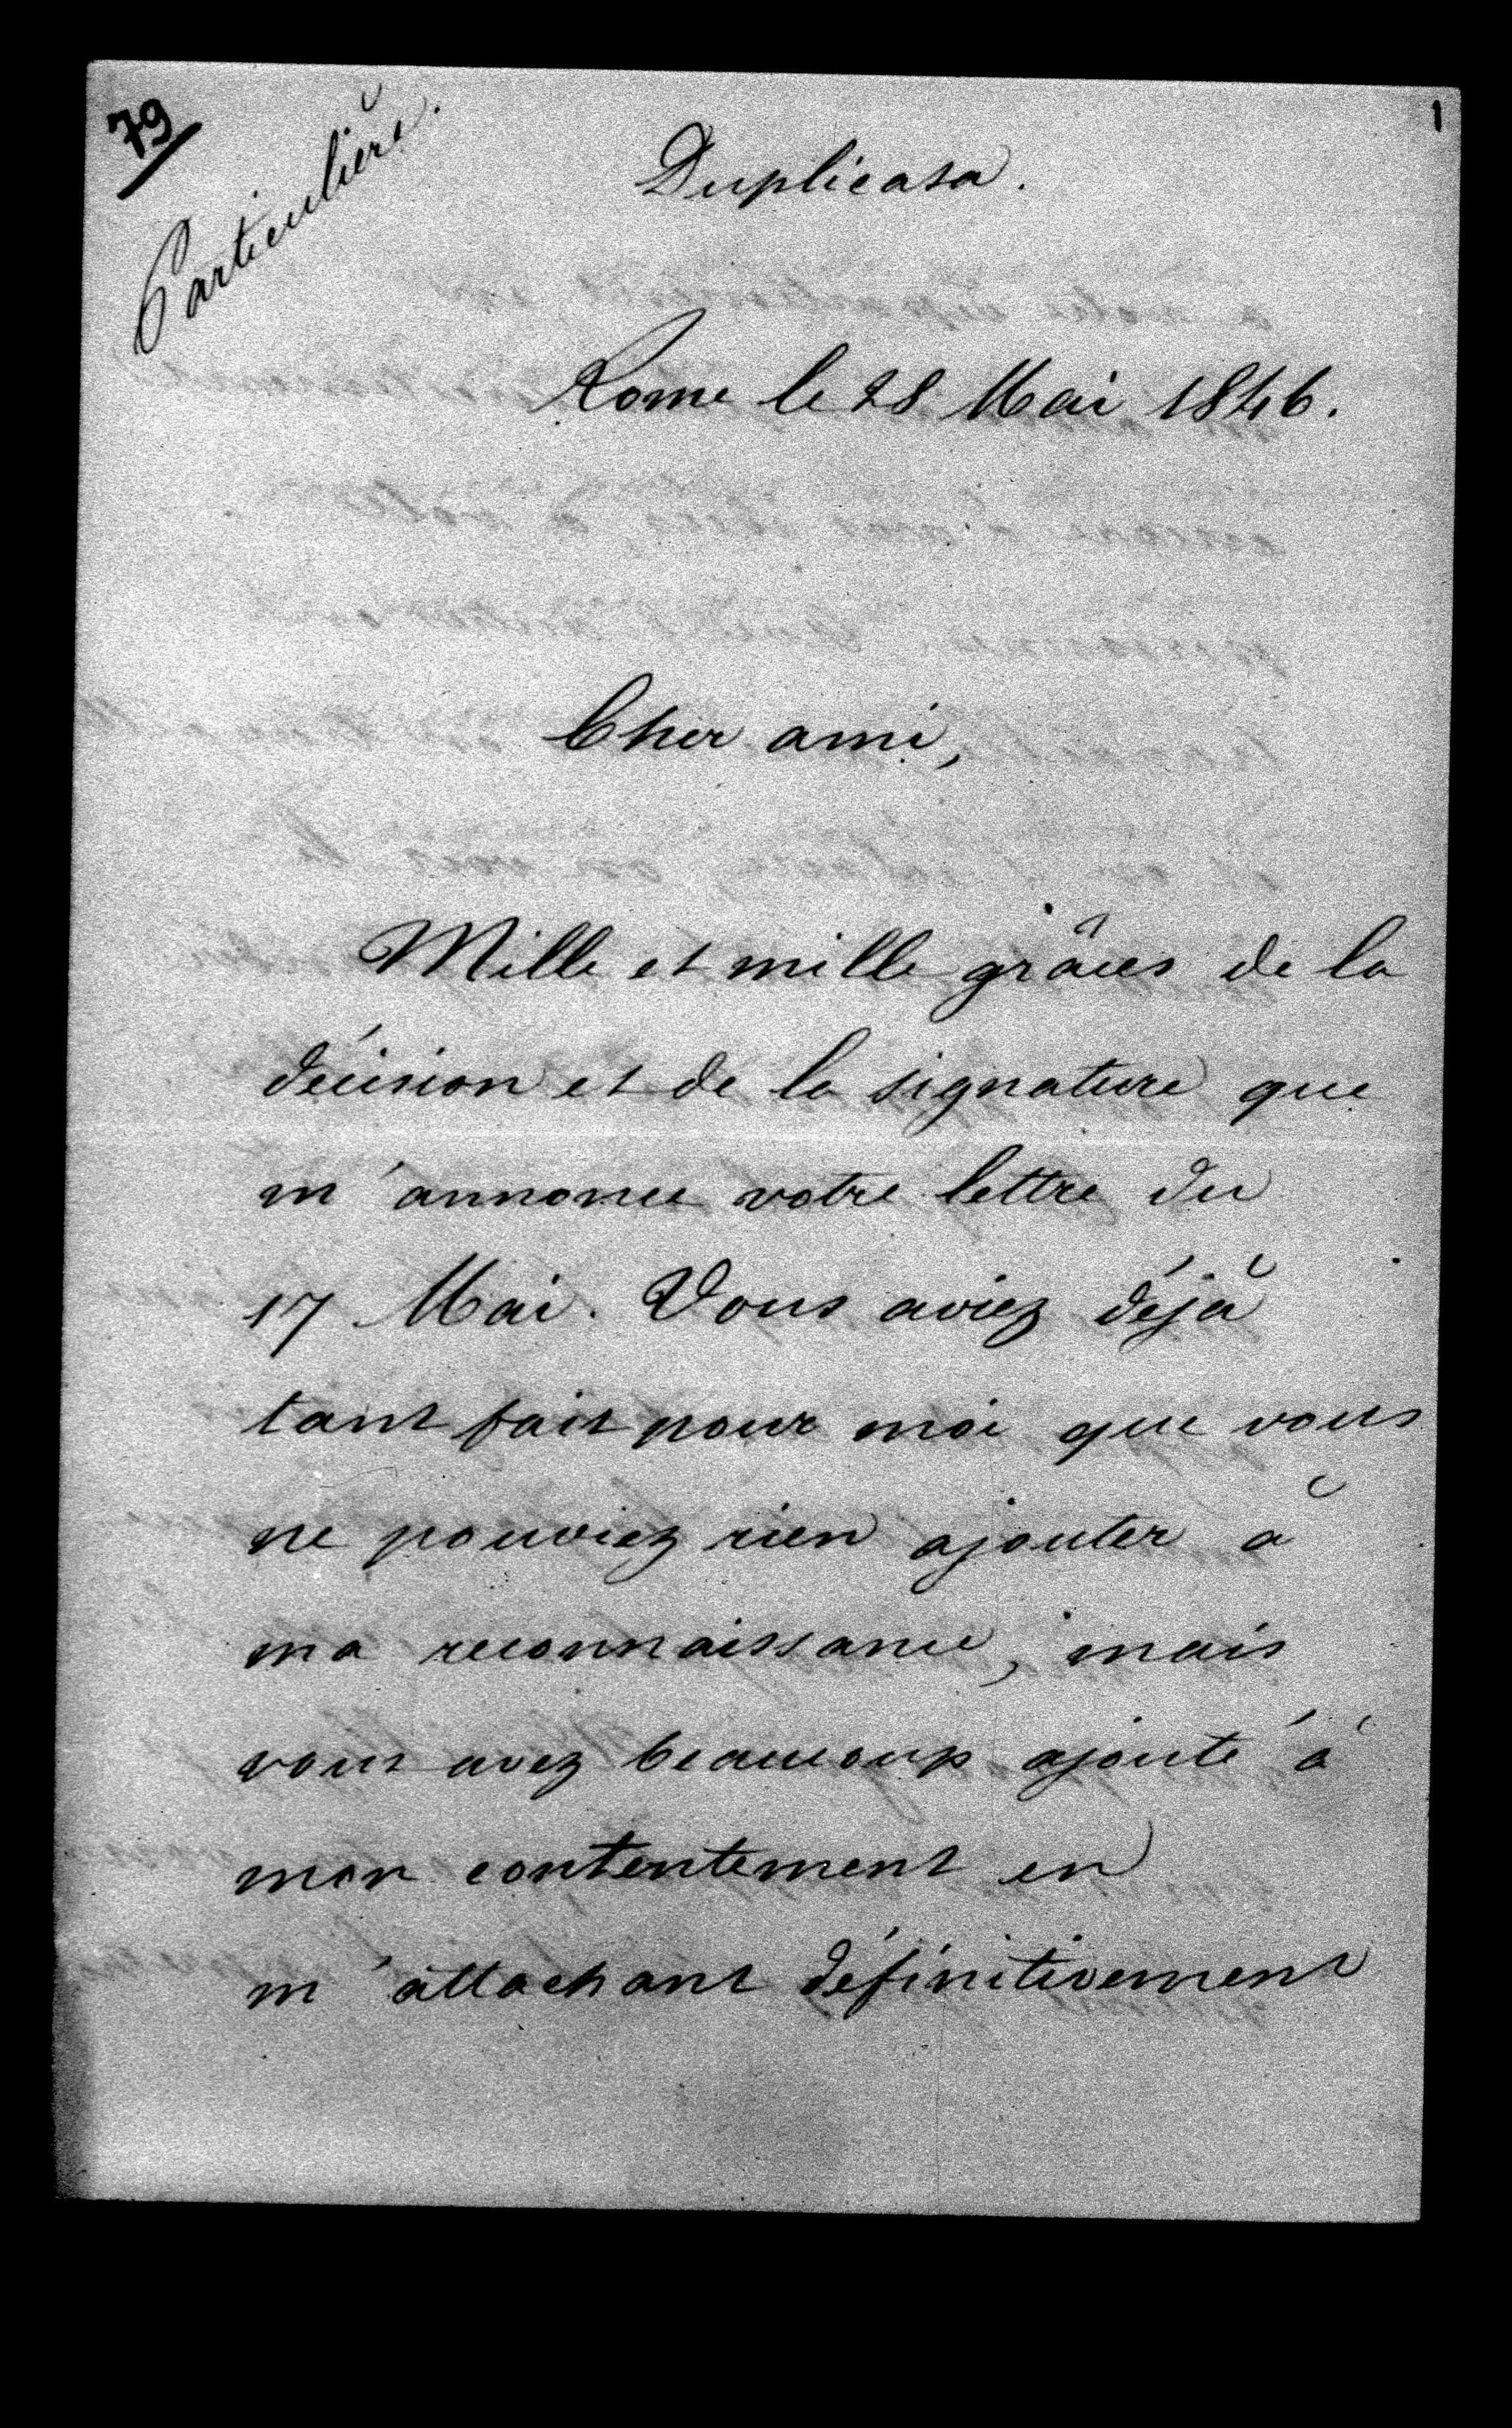 79
1
Particulière.
Duplicata.
Rome le 28 Mai 1846.
Cher ami,
Mille et mille grâces de la
décision et de la signature que
m'annonce votre lettre du
17 Mai. Vous aviez déjà
tant fait pour moi que vous
ne pouviez rien ajouter à
ma reconnaissance, mais
vous avez beaucoup ajouté à
mon contentement en
m'attachant définitivement